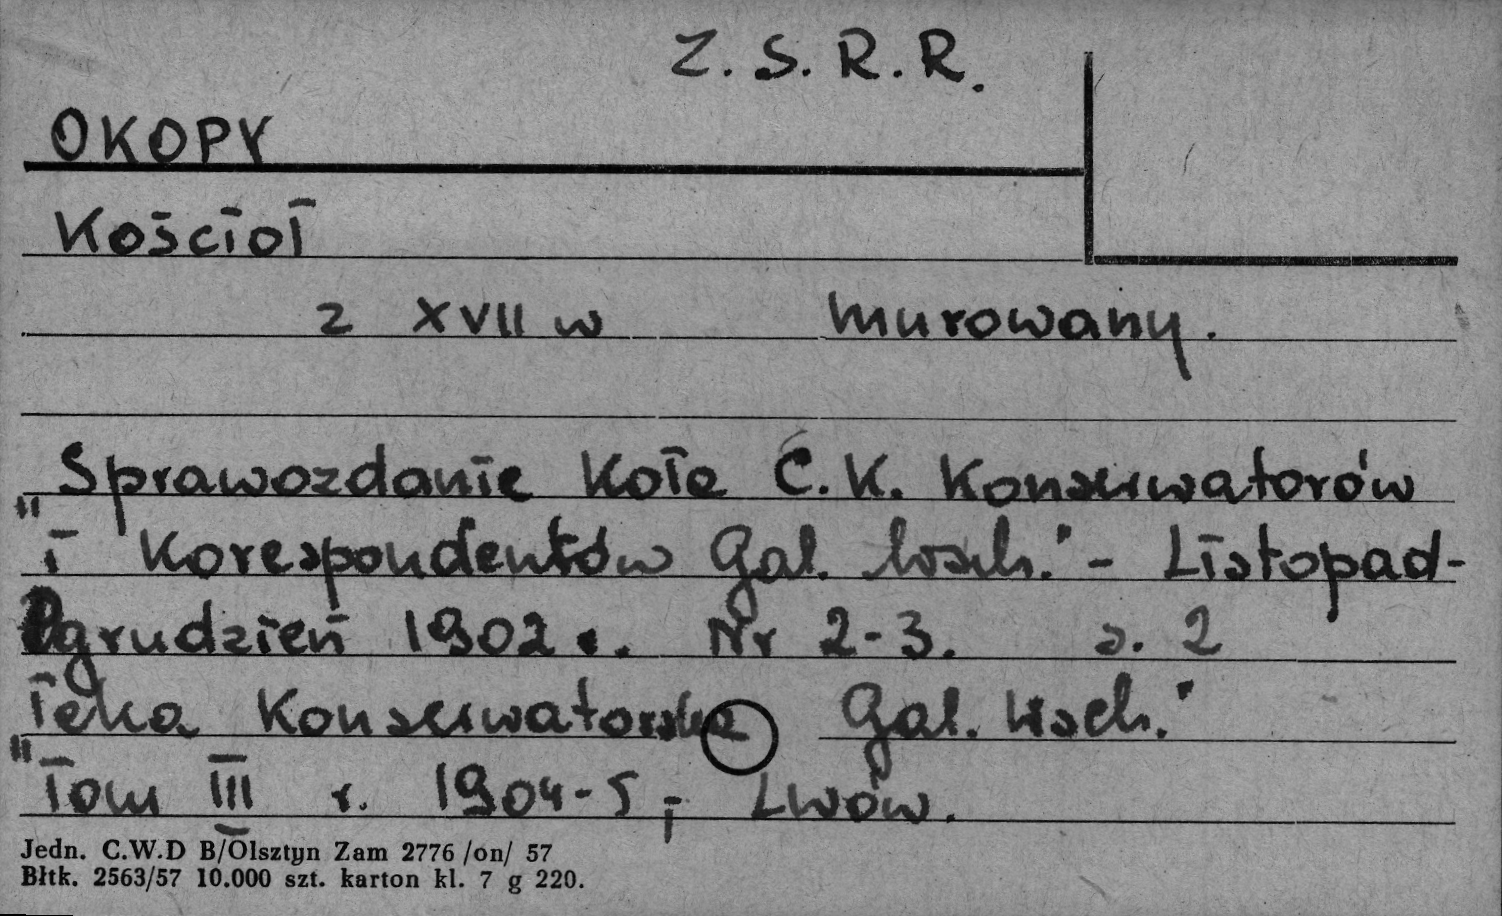 Z. S. R. R.
OKOPY
Kościoł
z XVII w murowany.
Sprawozdanie Koła C. K. Konserwatorów
"i Korespondentów Gal. Wsch." - Listopad-
grudzień 1902 r. Nr 2-3. s. 2
Teka Konserwatorska Gal. Wsch."
"Tom III r. 1904-5, Lwów.
Jedn. C.W.D B/Olsztyn Zam 2776 /on/ 57
Błtk. 2563/57 10.000 szt. karton kl. 7 g 220.